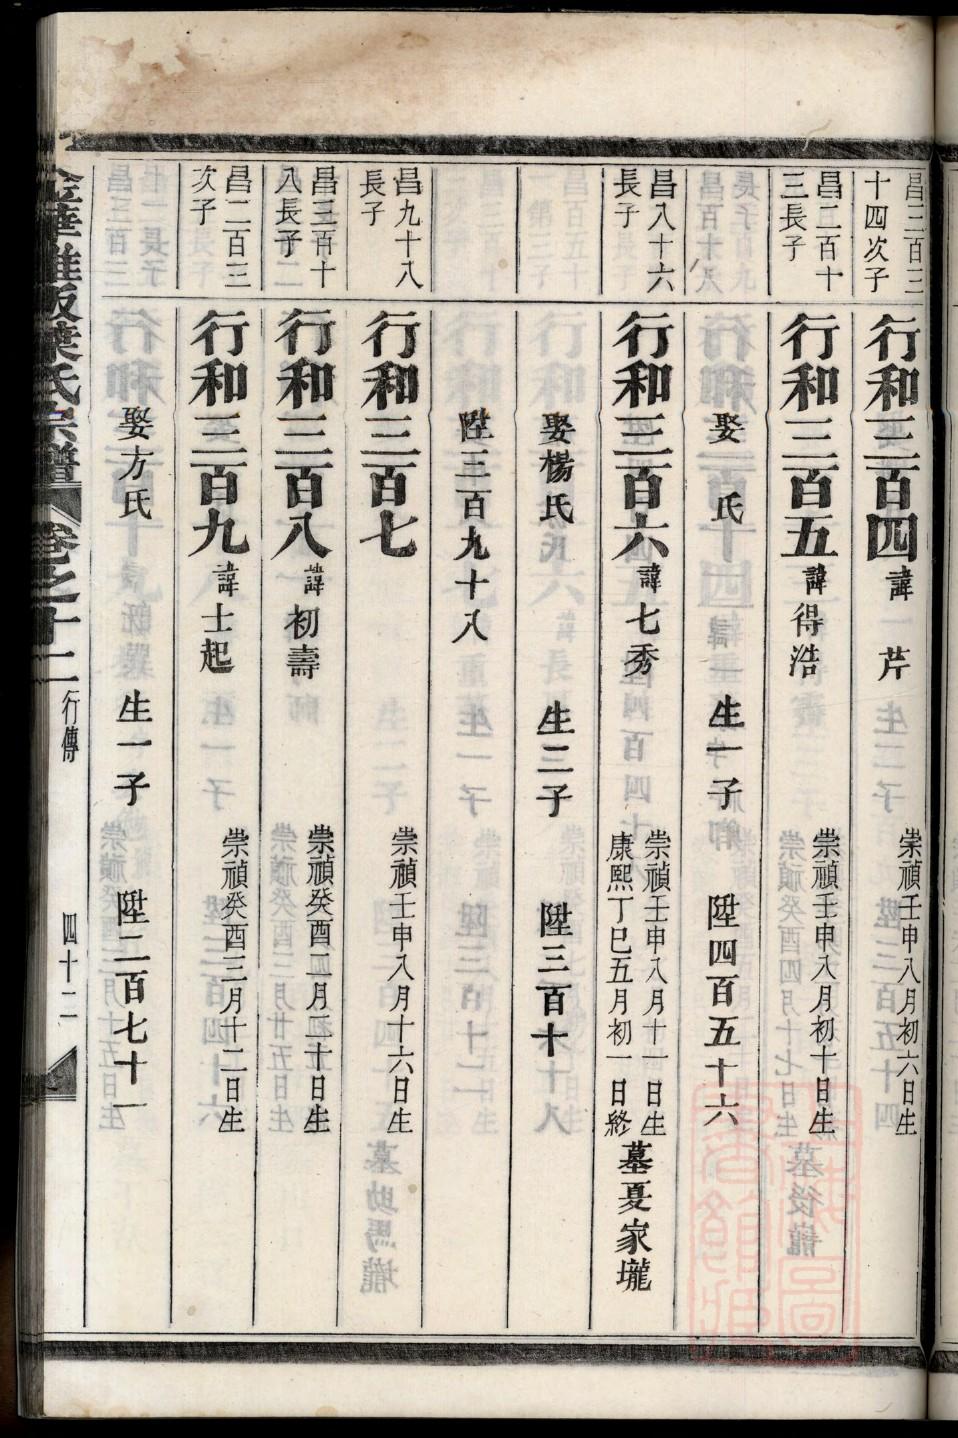 昌二百三
十四次子
行和三百四 諱 芹
崇禎壬申八月初六日生
昌二百十
三長子
行和三百五 諱得浩
崇禎壬申八月初十日生
娶 氏 生一子 陞四百五十六
昌八十六
長子
行和三百六 諱七秀
崇禎壬申八月十一日生
康熙丁巳五月初一日終
墓夏家壠
娶楊氏 生二子 陞三百十
陞三百九十八
昌九十八
長子
行和三百七
崇禎壬申八月十六日生
昌三百十
八長子
行和三百八 諱初壽
崇禎癸酉二月二十日生
昌二百三
次子
行和三百九 諱士起
崇禎癸酉三月十二日生
娶方氏 生一子 陞二百七十一
行傳
四十二